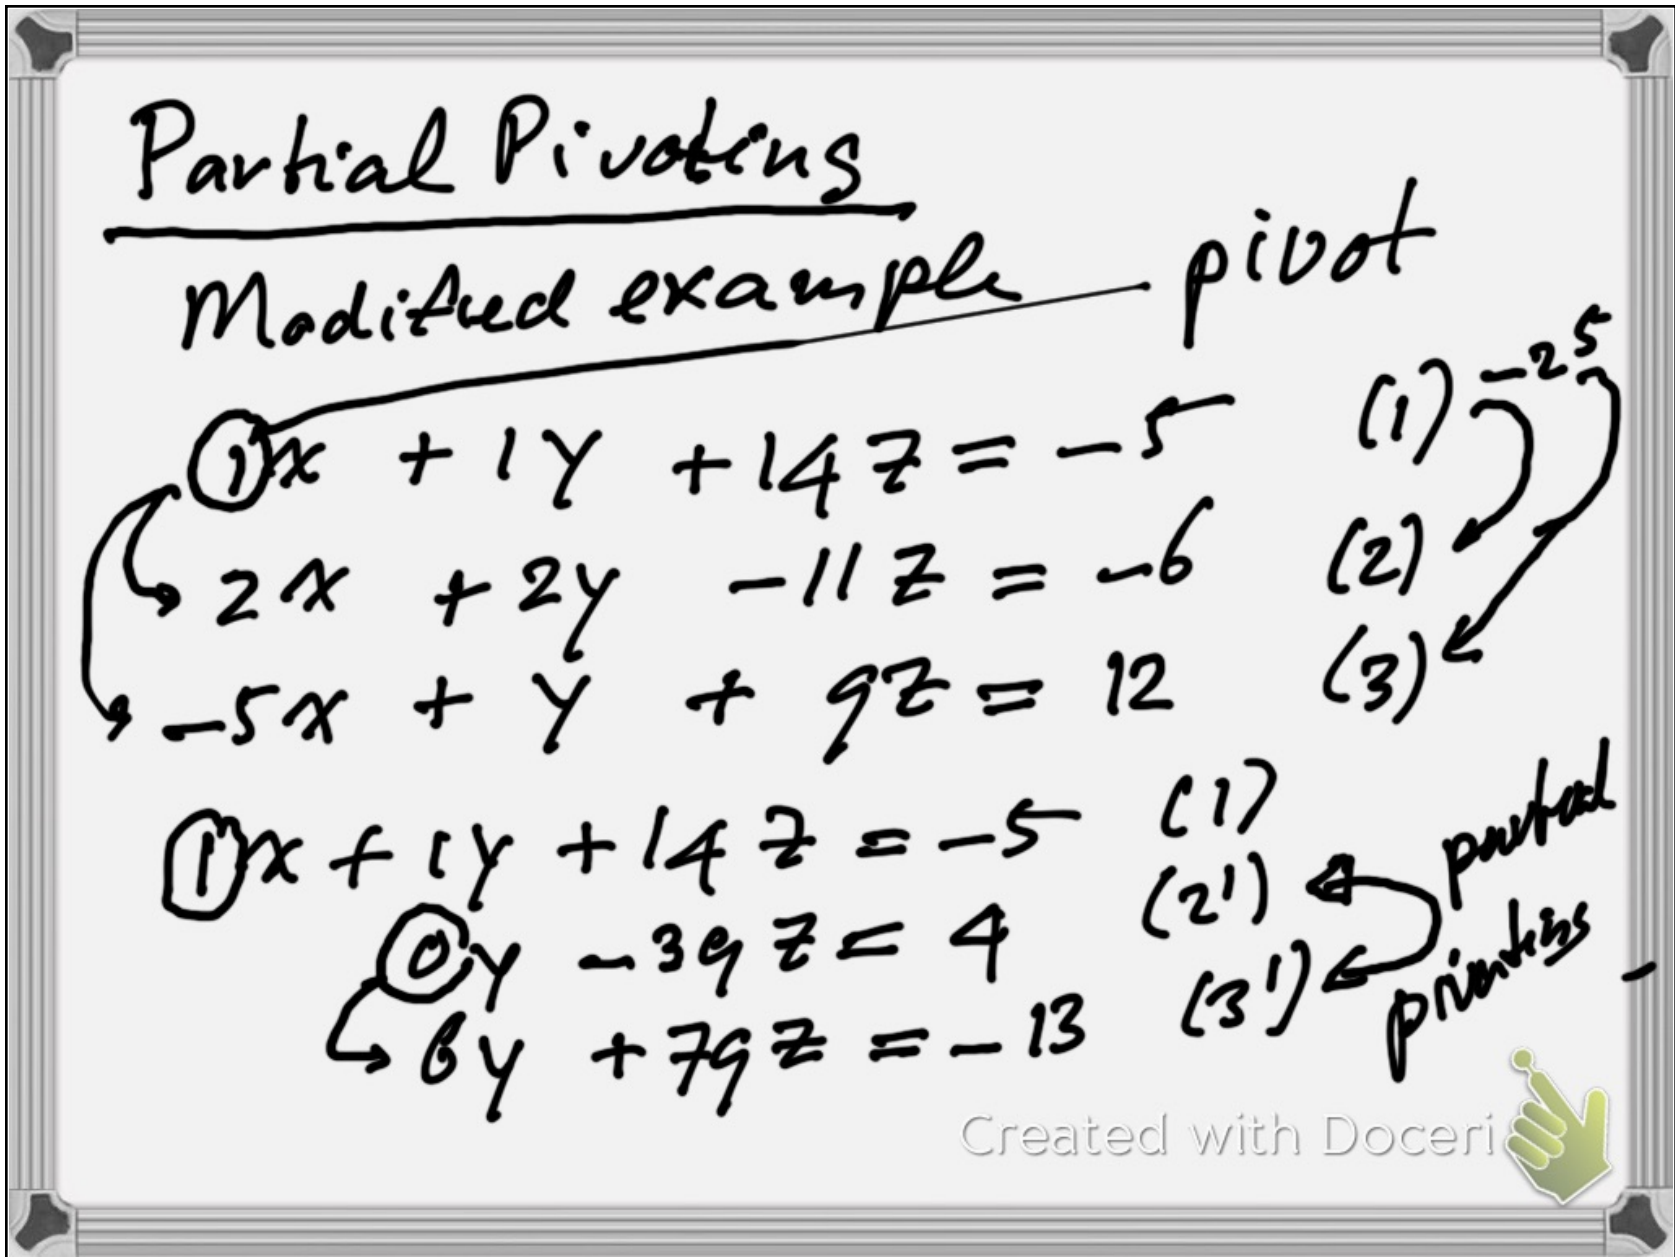 Partial Pivoting
Modified example pivot
1x + 1y + 14z = -5 (1) -2 5
2x + 2y -11z = -6 (2)
-5x + y + 9z = 12 (3)
1x + 1y + 14z = -5 (1)
0y -39z = 4 (2') partial
6y + 79z = -13 (3') pivoting
Created with Doceri